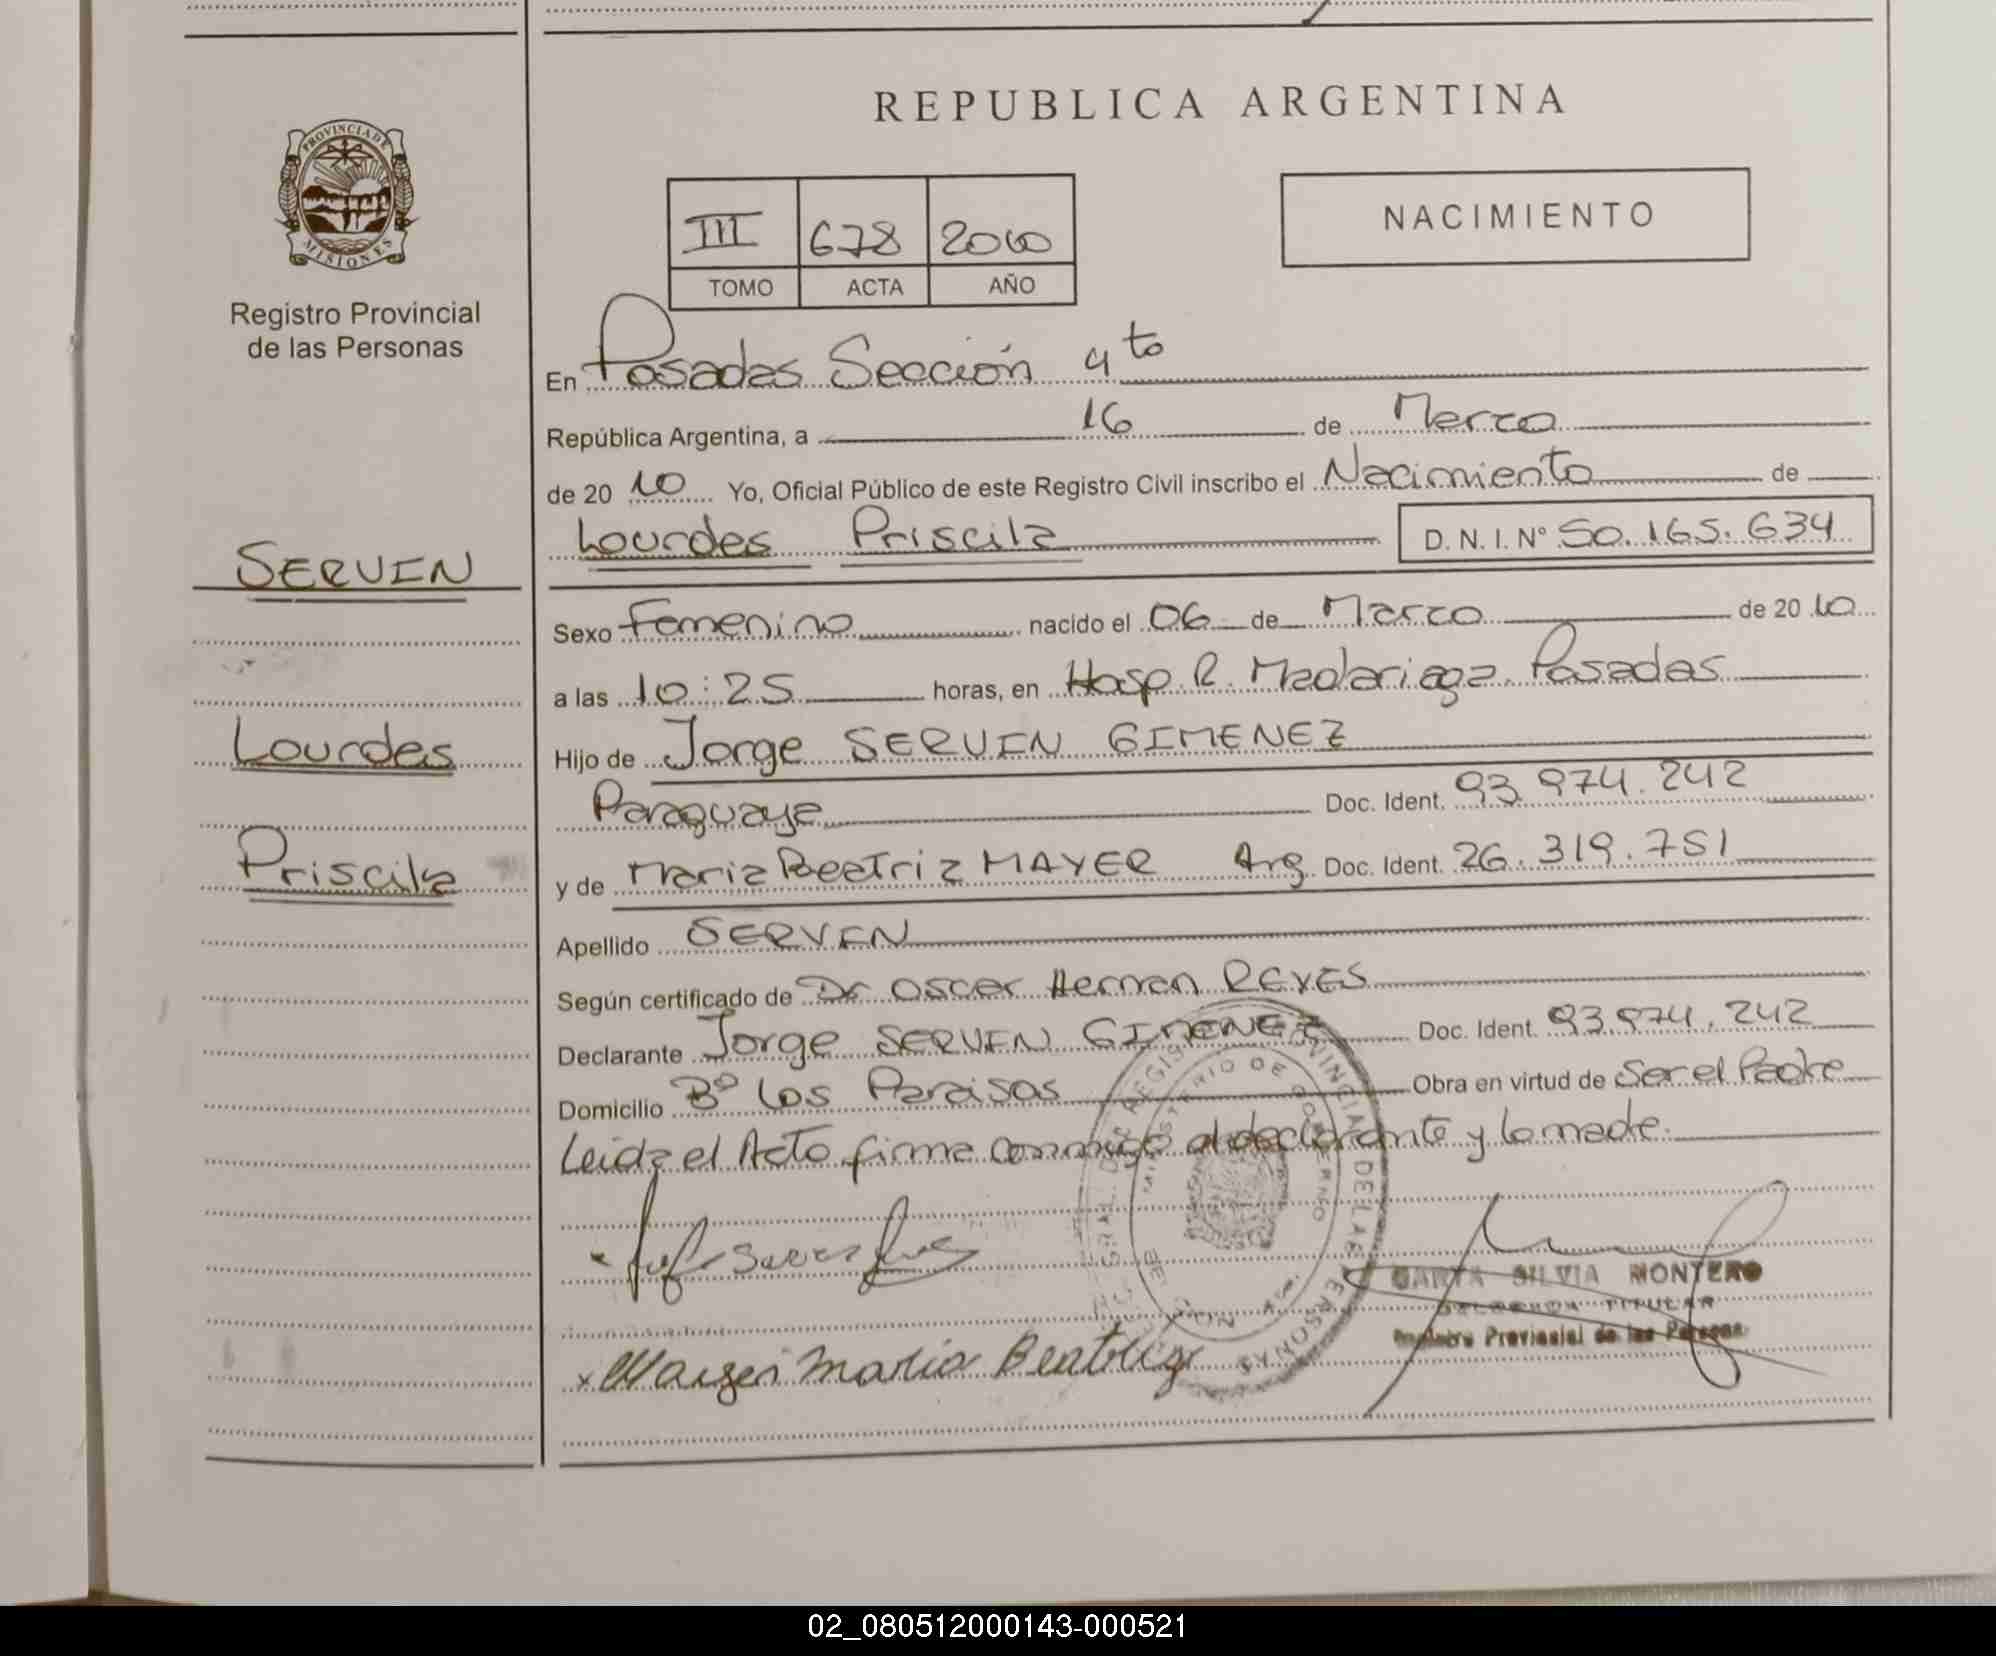 REPUBLICA ARGENTINA
PROVINCIA DE MISIONES
Registro Provincial
de las Personas
III 678 2010
TOMO ACTA AÑO
NACIMIENTO
En Posadas Sección 4to
República Argentina, a 16 de Marzo
de 20 10 Yo, Oficial Público de este Registro Civil inscribo el Nacimiento de
Lourdes Priscila D.N.I. Nº 50.165.634
SERVIN
Lourdes
Priscila
Sexo Femenino nacido el 06 de Marzo de 20 10
a las 10:25 horas, en Hosp. R. Madariaga. Posadas
Hijo de Jorge SERVIN GIMENEZ
Paraguaya Doc. Ident. 93.974.242
y de Maria Beatriz MAYER Arg. Doc. Ident. 26.319.751
Apellido SERVIN
Según certificado de Dr Oscar Hernan REYES
Declarante Jorge SERVIN GIMENEZ Doc. Ident. 93.974.242
Domicilio Bº Los Paraisos Obra en virtud de Ser el Padre
Leida el Acto firma conmigo el declarante y la madre.
MINISTERIO DE GOBIERNO
Mayer Maria Beatriz
SILVIA MONTERO
TITULAR
Registro Provincial de las Personas
02_080512000143-000521